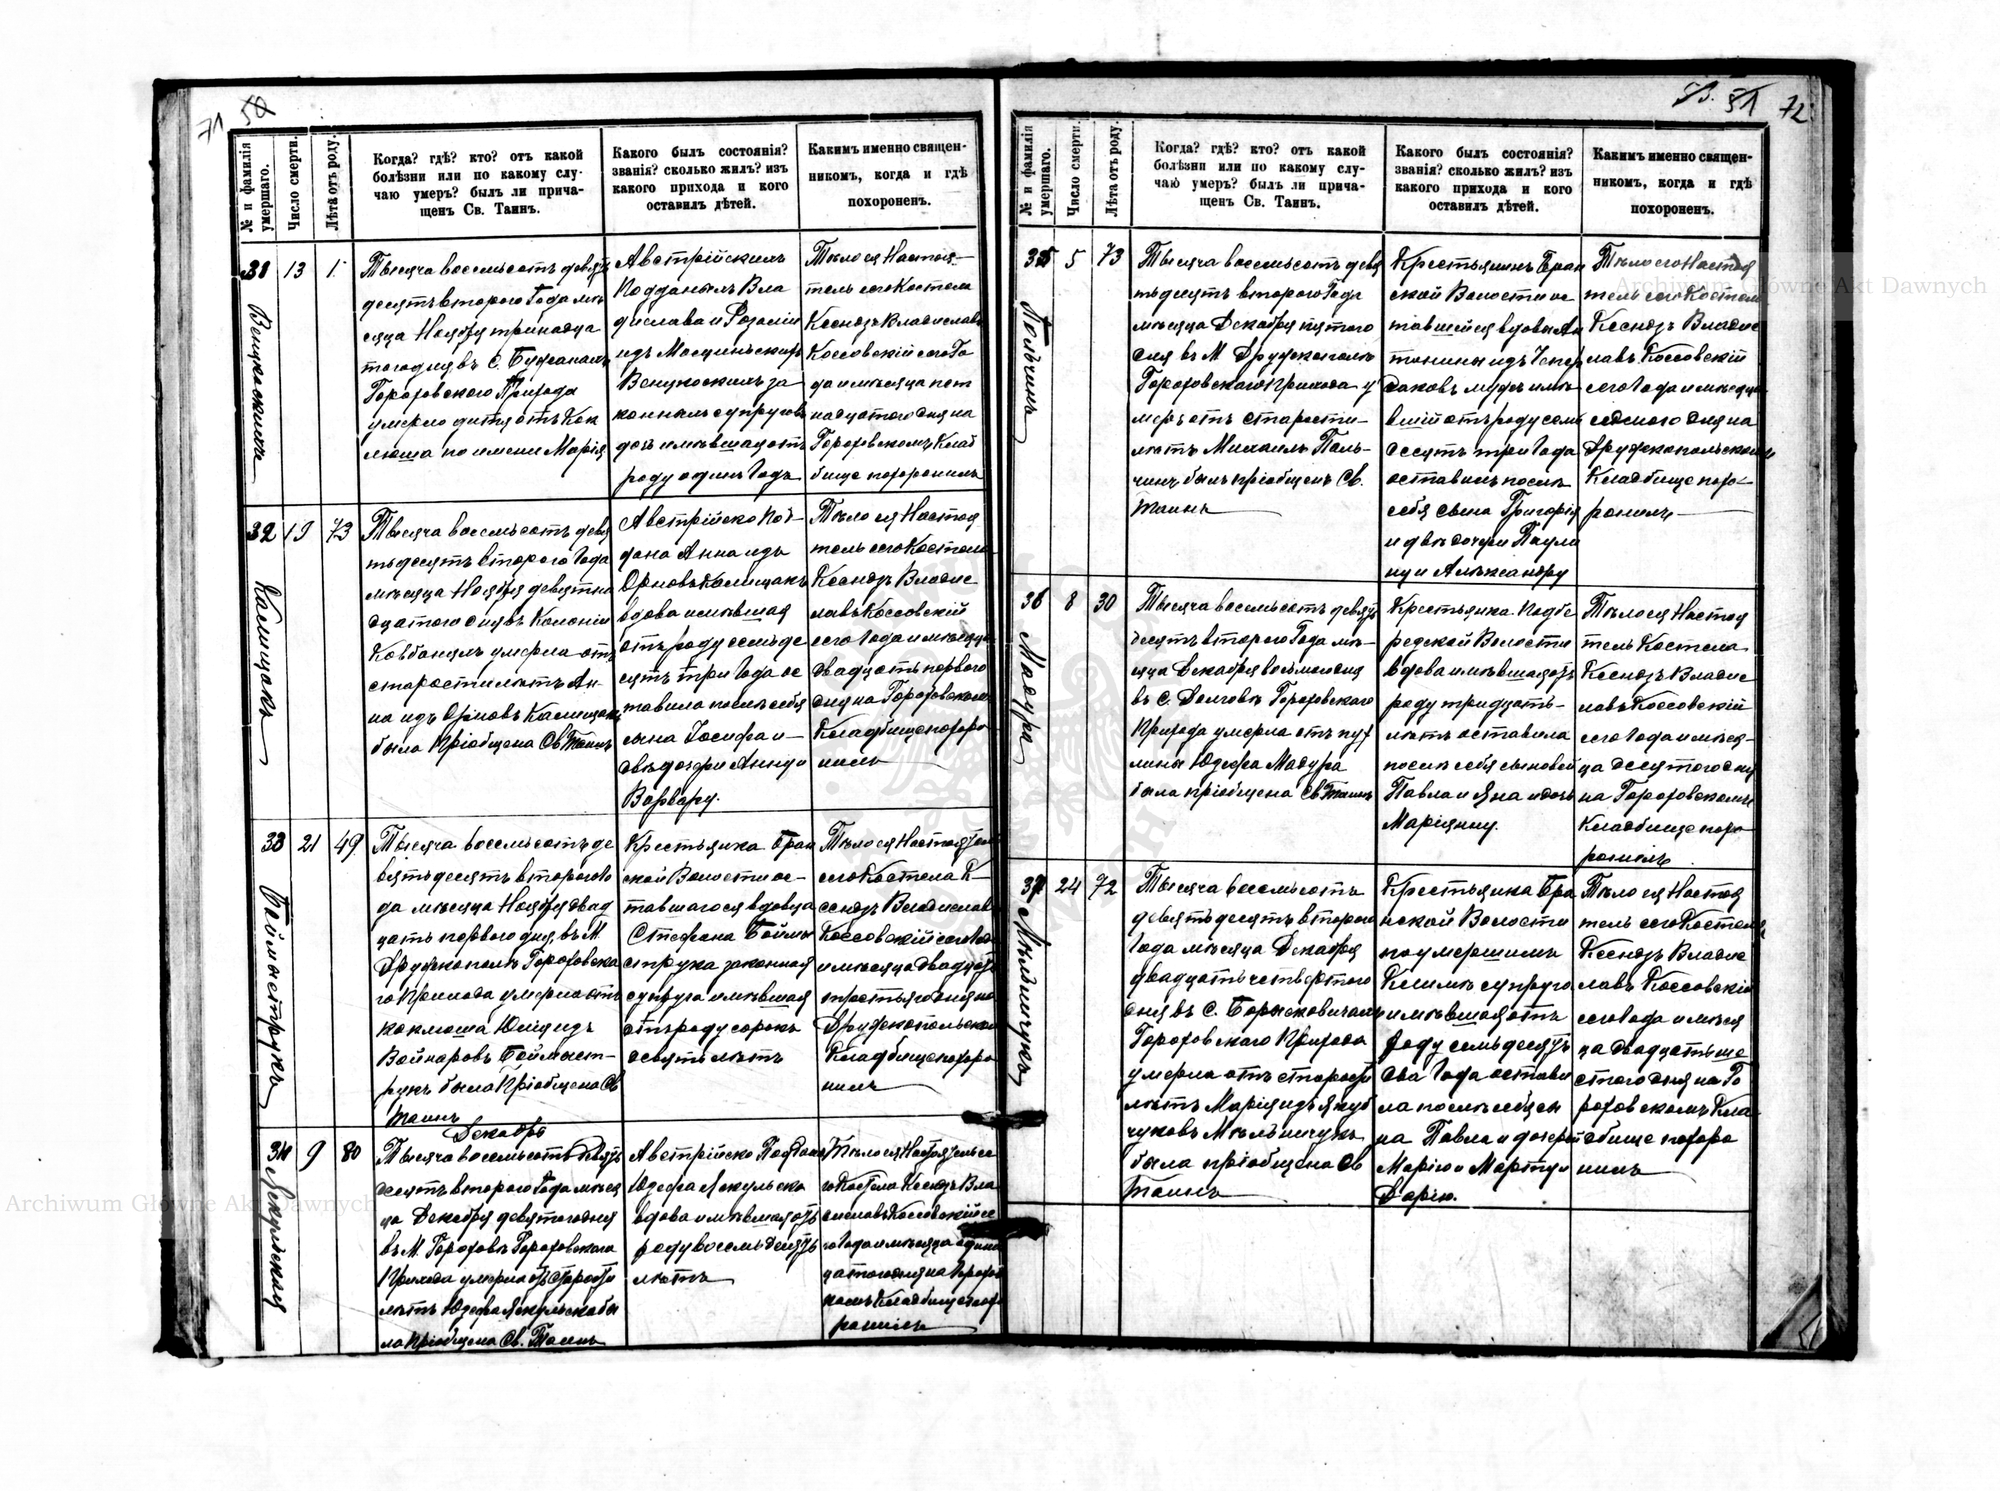 71 50
№ и фамилія умершаго.
Число смерти.
Лѣта отъ роду.
Когда? гдѣ? кто? отъ какой
болѣзни или по какому слу-
чаю умеръ? былъ ли прича-
щенъ Св. Таинъ.
Какого былъ состоянія?
званія? сколько жилъ? изъ
какого прихода и кого
оставилъ дѣтей.
Какимъ именно священ-
никомъ, когда и гдѣ
похороненъ.
31
13
1
Тысяча восемьсотъ девять
десятъ второго Года мѣ
сяца Ноября тринадца
того дня въ с.
Гороховского Прихода
умерло дитя отъ Кок
люша по имени Марія
Австрійскихъ
Подданыхъ Вла
дислава и Розаліи
изъ
за
конныхъ супруговъ
дочь имѣвшая отъ
роду одинъ Годъ
Тѣло ея Настоя-
тель сего Костела
Ксендзъ Владиславъ
Коссовскій сего Го
да и мѣсяца пят
надцатого дня на
Гороховскомъ Клад
бище похоронилъ
32
19
73
Каминцакъ
Тысяча восемьсотъ девя
тьдесятъ второго Года
мѣсяца Ноября девятна
дцатого дня въ Колоніи
умерла отъ
старости лѣтъ Ан
на изъ
была Пріобщена Св Таинъ
Австрійско Под-
дана Анна изъ
вдова имѣвшая
отъ роду семьде
сятъ три Года ос
тавила после себя
сына Іосифа и
двѣ дочери Анну и
Варвару.
Тѣло ея Настоя
тель сего Костела
Ксендзъ Владис
лавъ Коссовскій
сего Года и мѣсяца
двадцать первого
дня на Гороховскомъ
Кладбище похоро
нилъ
33
21
49
Боймыструкъ
Тысяча восемьсотъ де
вятьдесятъ второго Го
да мѣсяца Ноября двад
цать первого дня, въ М
Дружкополѣ Гороховска
го Прихода умерла отъ
коклюша изъ
Войнаровъ Боймыст-
рукъ была Пріобщена Св
Таинъ
Крестьянка
ской Волости ос-
тавшагося вдовца
Стефана Боймы
струка законная
супруга имѣвшая
отъ роду сорокъ
девять лѣтъ
Тѣло ея Настоятель
сего Костела К-
сендзъ Владиславъ
Коссовскій сего Года
и мѣсяца двадцать
третьяго дня на
Дружкопольском
Кладбище похоро
нилъ
34
9
80
Якульская
Декабрь
Тысяча восемьсотъ девять
десятъ второго Года мѣся
ца Декабря девятого дня
въ М. Гороховѣ Гороховского
Прихода умерла отъ старости
лѣтъ Юзефа Якульска бы
ла Пріобщена Св. Таинъ
Австрійско Поддана
Юзефа Якульска
вдова имѣвшая отъ
роду восемьдесятъ
лѣтъ
Тѣло ея Настоятель се
го Костела Ксендзъ Вла
диславъ Коссовскій се
го Года и мѣсяца одина
цатого дня на Горохов
скомъ Кладбище похо
ронилъ
51 72
№ и фамилія умершаго.
Число смерти.
Лѣта отъ роду.
Когда? гдѣ? кто? отъ какой
болѣзни или по какому слу-
чаю умеръ? былъ ли прича-
щенъ Св. Таинъ.
Какого былъ состоянія?
званія? сколько жилъ? изъ
какого прихода и кого
оставилъ дѣтей.
Какимъ именно священ-
никомъ, когда и гдѣ
похороненъ.
35
5
73
Польчинъ
Тысяча восемьсотъ девя
тьдесятъ второго Года
мѣсяца Декабря пятого
дня въ М Дружкополѣ
Гороховского Прихода у
меръ отъ старости
лѣтъ Михаилъ Поль-
чинъ былъ пріобщенъ Св.
Таинъ
Крестьянинъ
ской Волости ос
тавшейся вдовы Ан
тонины изъ
мужъ имѣ
вшій отъ роду семь
десятъ три Года
оставилъ послѣ
себя сына Григорія
и двѣ дочери Паули
ну и Александру
Тѣло его Настоя
тель сего Костела
Ксендзъ Владис
лавъ Коссовскій
сего Года и мѣсяца
седмого дня на
Дружкопольскомъ
Кладбище похо-
ронилъ
36
8
30
Мазура
Тысяча восемьсотъ девять
десятъ второго Года мѣ-
сяца Декабря восьмого дня
въ С. Долговѣ Гороховского
Прихода умерла отъ пух
лины Юзефа Мазура
была пріобщена Св Таинъ
Крестьянка Подбе
резской Волости
вдова имѣвшая отъ
роду тридцать
лѣтъ оставила
после себя сыновей
Павла и Яна и дочь
Маріянну.
Тѣло ея Настоя
тель Костела
Ксендзъ Владис
лавъ Коссовскій
сего Года и мѣся-
ца десятого дня
на Гороховскомъ
Кладбище похо
ронилъ
37
24
72
Мѣльничукъ
Тысяча восемьсотъ
девятьдесятъ второго
Года мѣсяца Декабря
двадцать четвертого
дня въ С. Борисковичахъ
Гороховского Прихода
умерла отъ старости
лѣтъ Марія изъ Якуб
чуковъ Мѣльничукъ
была пріобщена Св
Таинъ
Крестьянка
ской Волости
по умершимъ
супруго
имѣвшая отъ
роду семьдесятъ
два Года остави
ла послѣ себя сы
на Павла и дочерей
Марію и Марту и
Дарію.
Тѣло ея Настоя
тель сего Костела
Ксендзъ Владис
лавъ Коссовскій
сего Года и мѣся
ца двадцать ше
стого дня на Го
роховскомъ Кла
дбище похоро
нилъ
Archiwum Główne Akt Dawnych
Archiwum Główne Akt Dawnych